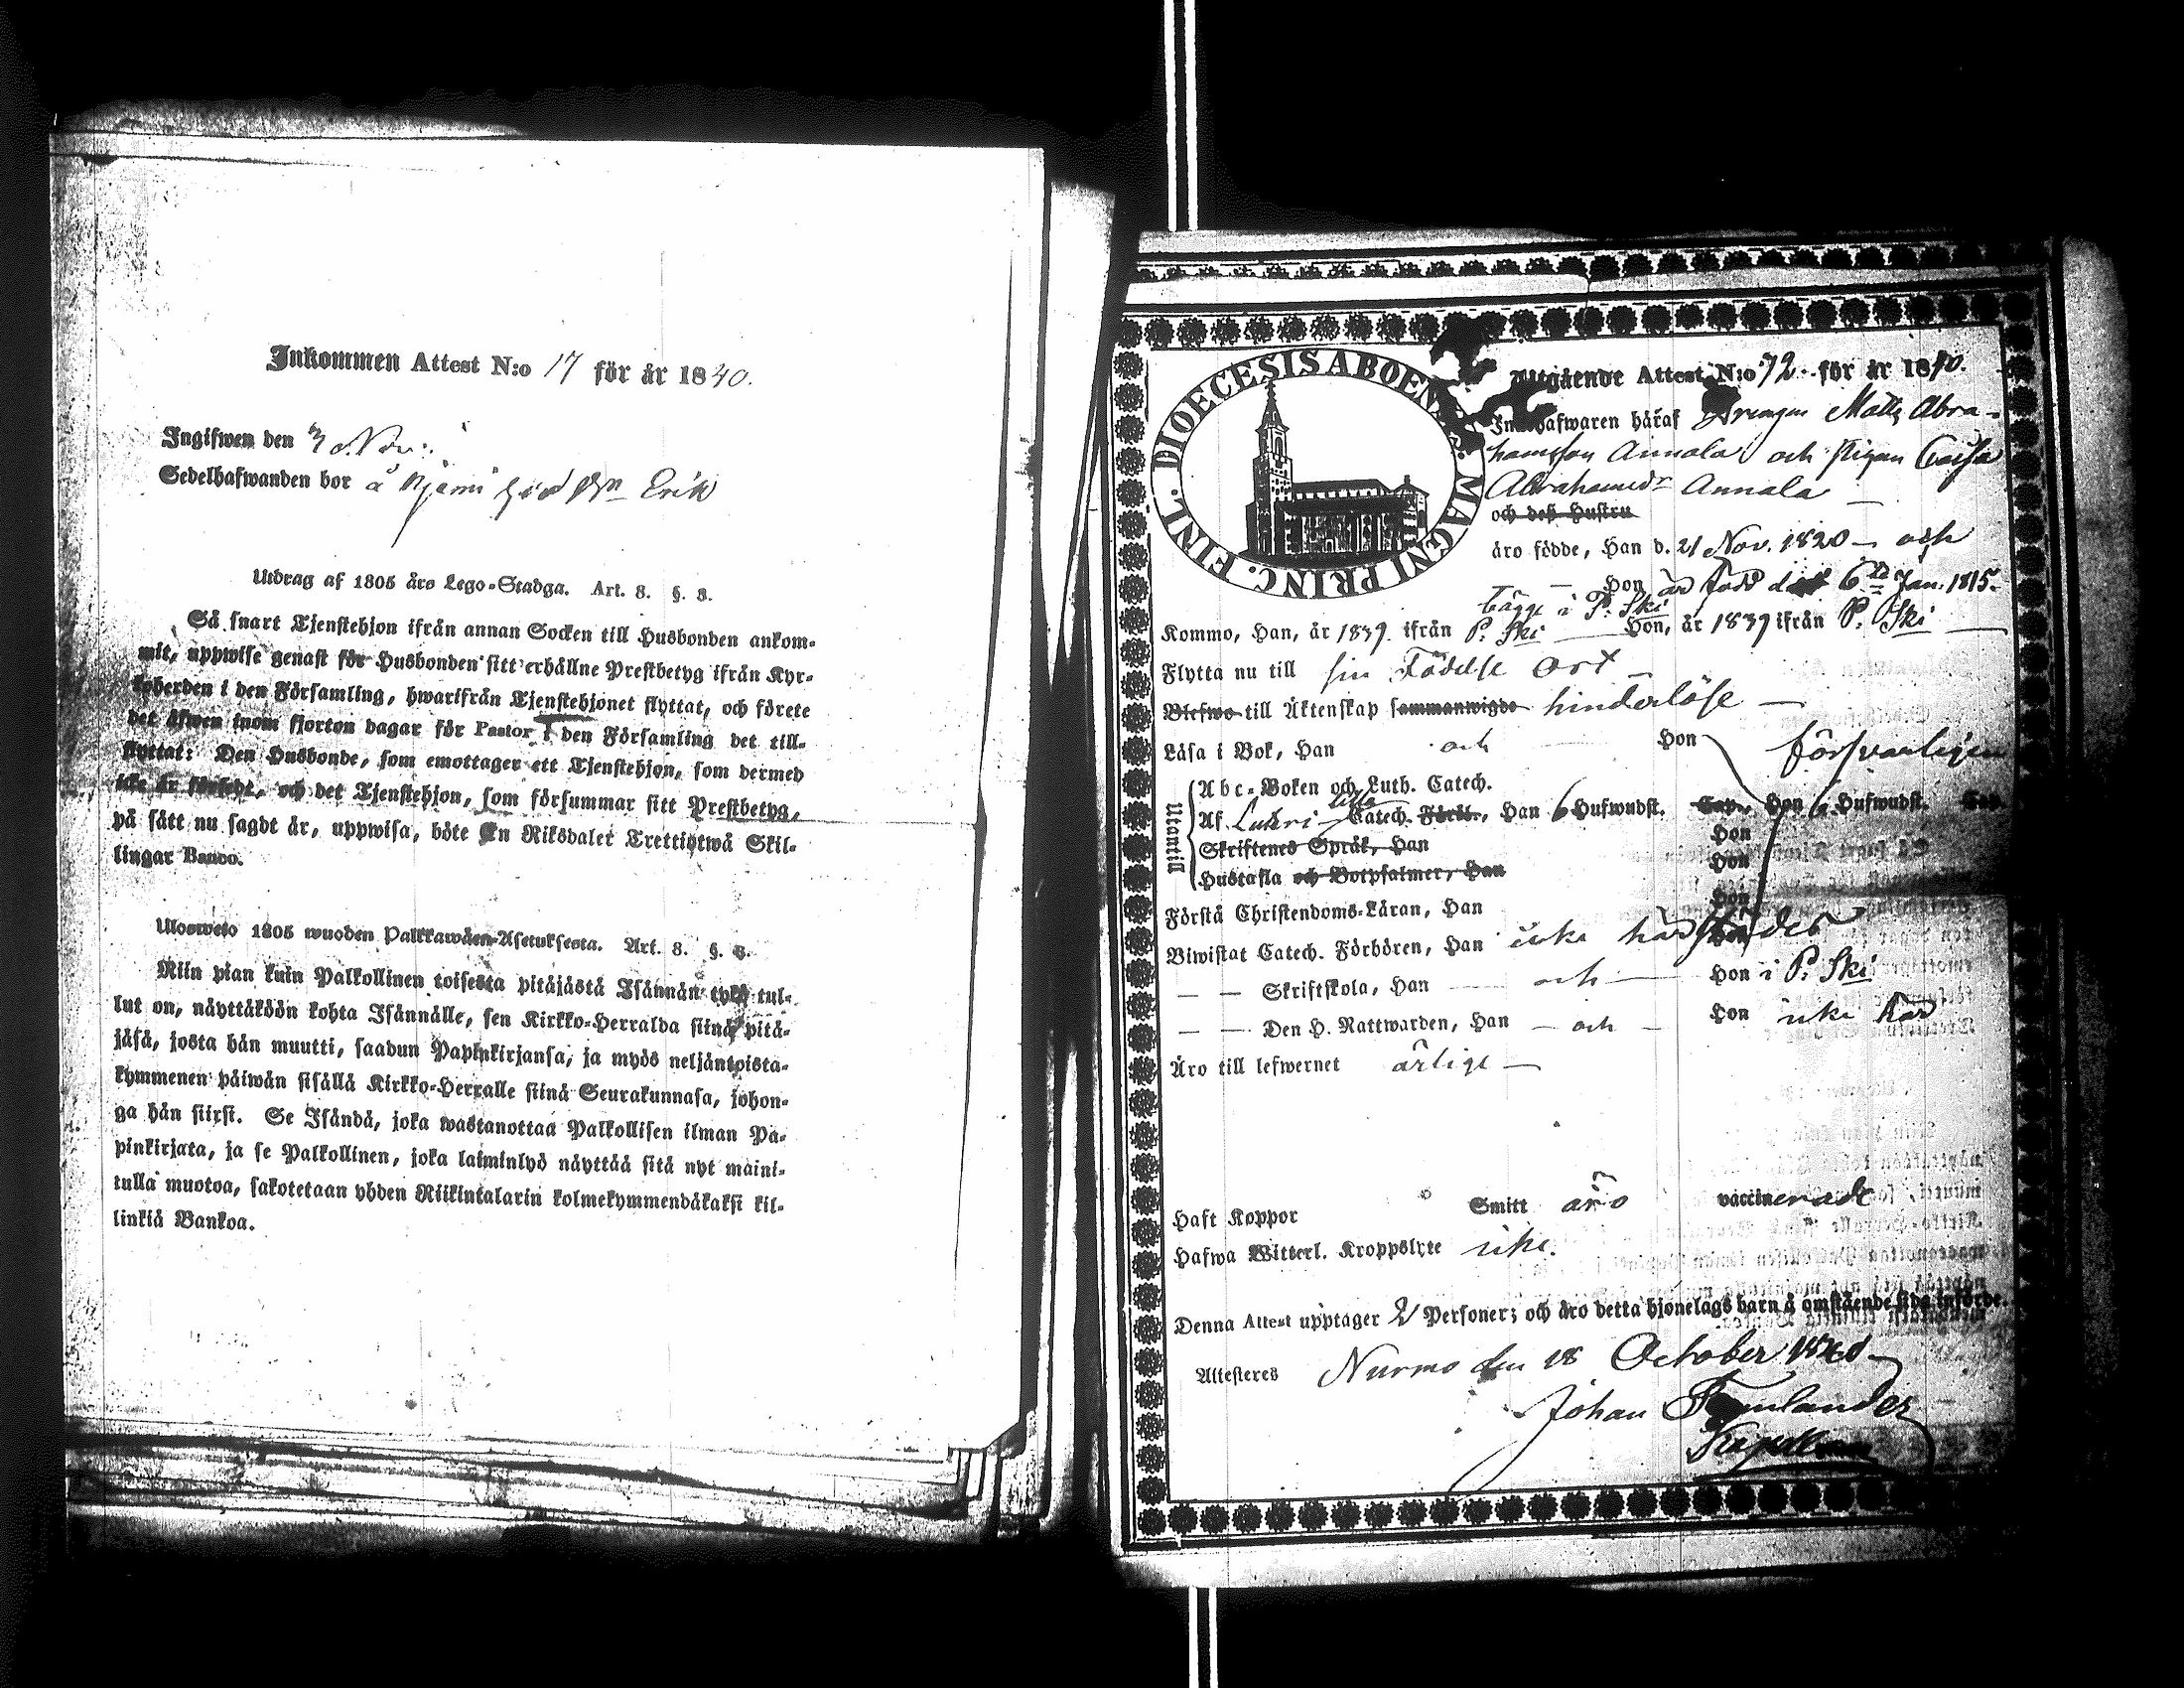 Inkommen Attest N:o 17 för år 1840.
Ingifwen den 3 Nov:
Sedelhafwanden bor å Erik
Utdrag af 1805 års Lego-Stadga. Art. 8. §. 8.
Så snart Tjenstehjon ifrån annan Socken till Husbonden ankom-
mit, uppwise genast för Husbonden sitt erhållne Prestbetyg ifrån Kyr-
koherden i den Församling, hwarifrån Tjenstehjonet flyttat, och förete
det äfwen inom fjorton dagar för Pastor i den Församling det till-
flyttat: Den Husbonde, som emottager ett Tjenstehjon, som dermed
icke är försedt, och det Tjenstehjon, som försummar sitt Prestbetyg,
på sätt nu sagdt är, uppwisa, böte En Riksdaler Trettiotwå Skil-
lingar Banco.
Ulosweto 1805 wuoden Palkkawäen-Asetuksesta. Art. 8. §. 8.
Niin pian kuin Palkollinen toisesta pitäjästä Isännän tykö tul-
lut on, näyttäköön kohta Isännälle, sen Kirkko-Herralda siinä pitä-
jäsä, josta hän muutti, saadun Papinkirjansa, ja myös neljäntoista-
kymmenen päiwän sisällä Kirkko-Herralle siinä Seurakunnasa, johon-
ga hän siirsi. Se Isändä, joka wastanottaa Palkollisen ilman Pa-
pinkirjata, ja se Palkollinen, joka laiminlyö näyttää sitä nyt maini-
tulla muotoa, sakotetaan yhden Riikintalarin kolmekymmendäkaksi kil-
linkiä Bankoa.
DIOECESIS ABOENS. MAGNI PRINC. FINL.
Utgående Attest N:o 72 för år 1840.
Innehafwaren häraf Drengen Matts Abra-
hamsson Annala och Pigan Caisa
Abrahamsdr Annala
och deß Hustru
äro födde, Han d. 21 Nov. 1820 och
Hon är född den 6te Jan. 1815.
bägge i P. Ski
Kommo, Han, år 1839 ifrån P. Ski Hon, år 1839 ifrån P. Ski
Flytta nu till sin Födelse ort
Blefwo till Äktenskap sammanwigde hinderlöse
Läsa i Bok, Han och Hon försvarligen
Utantill
Abc-Boken och Luth. Catech.
Af Lutheri lilla Catech. Förkl., Han 6 Hufwudst. Cap., Hon 6 Hufwudst. Cap.
Skriftenes Språk, Han Hon
Hustafla och Botpsalmer, Han Hon
Förstå Christendoms-Läran, Han Hon
Biwistat Catech. Förhören, Han icke härstädes
— — Skriftskola, Han och Hon i P. Ski
— — Den H. Nattwarden, Han och Hon icke här
Äro till lefwernet ärlige
Haft Koppor Smitt äro vaccinerade
Hafwa Witterl. Kroppslyte icke.
Denna Attest upptager 2 Personer; och äro detta hjonelags barn å omstående sida införde.
Attesteres Nurmo den 18 October 1840
Johan